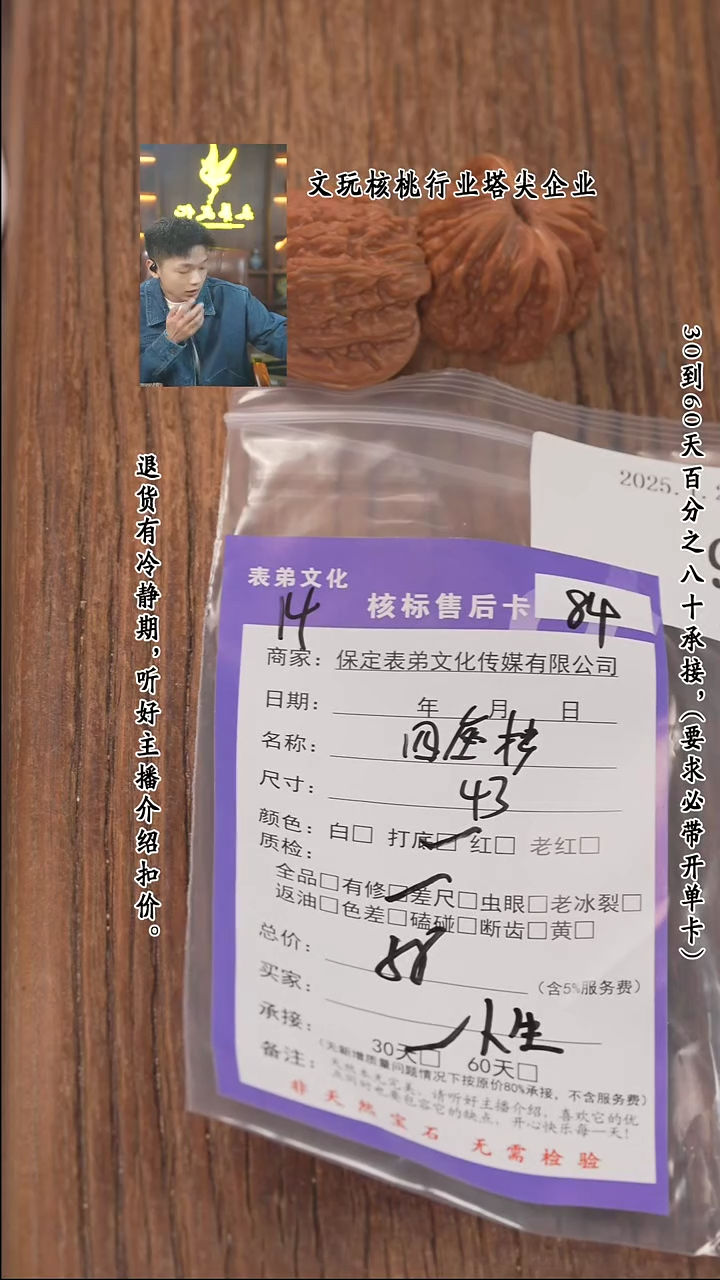 文玩核桃行业塔尖企业
30到60天百分之八十承接，（要求必带开单卡）
退货有冷静期，听好主播介绍扣价。
2025.
表弟文化
核标售后卡
14
84
商家：保定表弟文化传媒有限公司
日期： 年 月 日
名称： 四座楼
尺寸： 43
颜色：白□ 打底□ 红□ 老红□
质检：
全品□有修□差尺□虫眼□老冰裂□
返油□色差□磕碰□断齿□黄□
总价： （含5%服务费）
买家：
承接： 30天□ 60天□
人生
（无新增质量问题情况下按原价80%承接，不含服务费）
备注：天然本无完美，请听好主播介绍，喜欢它的优
点同时也要包容它的缺点，开心快乐每一天！
非天然宝石 无需检验